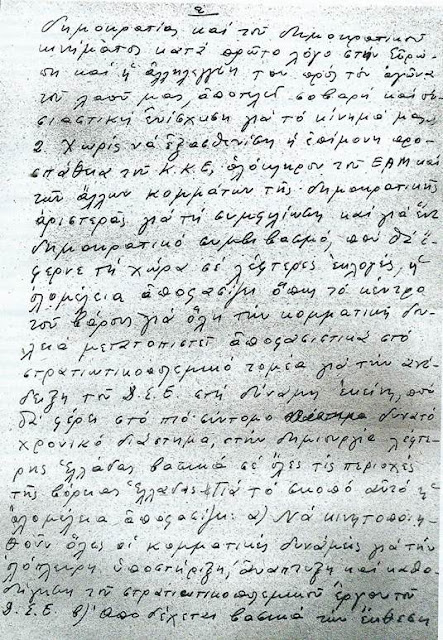 2
δημοκρατίας καὶ τοῦ δημοκρατικοῦ
κινήματος κατὰ πρῶτο λόγο στὴν Εὐρώ-
πη καὶ ἡ ἀλληλεγγύη του πρὸς τὸν ἀγῶνα
τοῦ λαοῦ μας, ἀποτελεῖ σοβαρὴ καὶ οὐ-
σιαστικὴ ἐνίσχυση γιὰ τὸ κίνημα μας.
2. Χωρὶς νὰ ἐξασθενίση ἡ ἐπίμονη προ-
σπάθεια τοῦ Κ.Κ.Ε, ὁλόκληρου τοῦ ΕΑΜ καὶ
τῶν ἄλλων κομμάτων τῆς δημοκρατικῆς
ἀριστερᾶς γιὰ τὴ συμφιλίωση καὶ γιὰ ἕνα
δημοκρατικὸ συμβιβασμό, ποὺ θά ἔ-
φερνε τὴ χώρα σὲ λέφτερες ἐκλογές, ἡ
ὁλομέλεια ἀποφασίζει ὅπως τὸ κέντρο
τοῦ βάρους γιὰ ὅλη τὴν κομματικὴ δου-
λειὰ μετατοπιστεῖ ἀποφασιστικὰ στὸ
στρατιωτικοπολεμικὸ τομέα γιὰ τὴν ἀνά-
δειξη τοῦ Δ.Σ.Ε. στὴ δύναμη ἐκείνη, ποὺ
θὰ φέρει στὸ πιὸ σύντομο δυνατὸ
χρονικὸ διάστημα, στὴν δημιουργία λέφτε-
ρης Ἑλλάδας βασικὰ σὲ ὅλες τὶς περιοχὲς
τῆς βόρειας Ἑλλάδας. Γιὰ τὸ σκοπὸ αὐτὸ ἡ
ὁλομέλεια ἀποφασίζει: α) Νὰ κινητοποιη-
θοῦν ὅλες οἱ κομματικὲς δυνάμεις γιὰ τὴν
ὁλόπλευρη ὑποστήριξη, ἀνάπτυξη καὶ καθο-
δήγηση τοῦ στρατιωτικοπολεμικοῦ ἔργου τοῦ
Δ.Σ.Ε. β) Ἀποδέχεται βασικὰ τὴν ἔκθεση